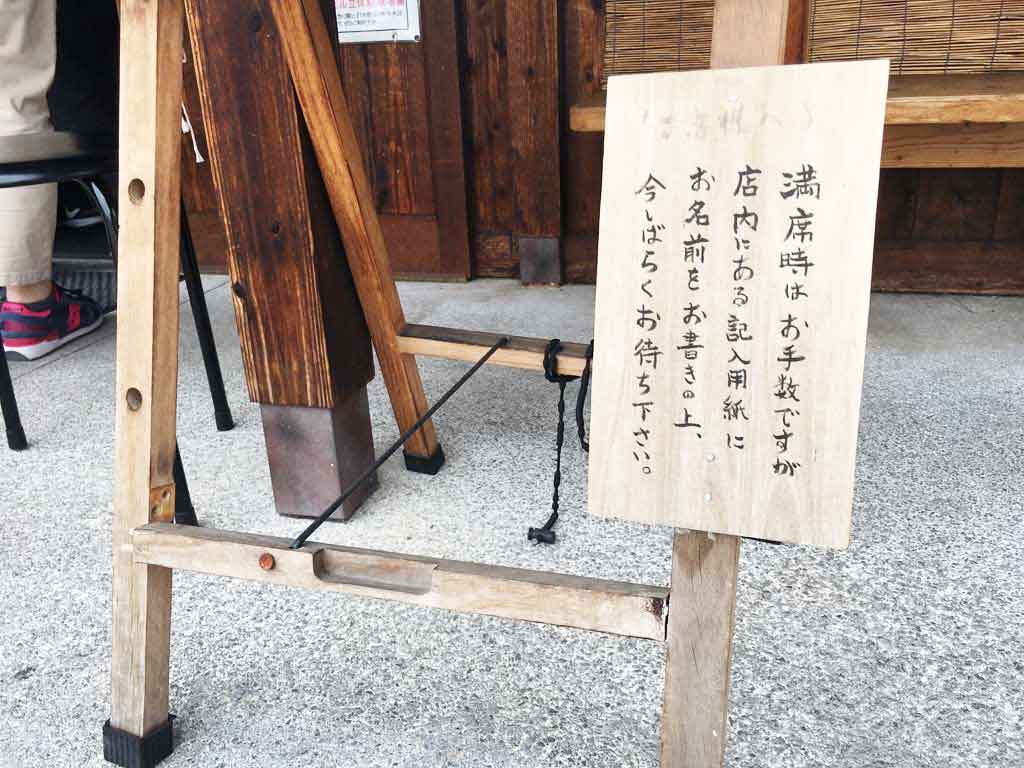 満席時はお手数ですが
店内にある記入用紙に
お名前をお書きの上、
今しばらくお待ち下さい。